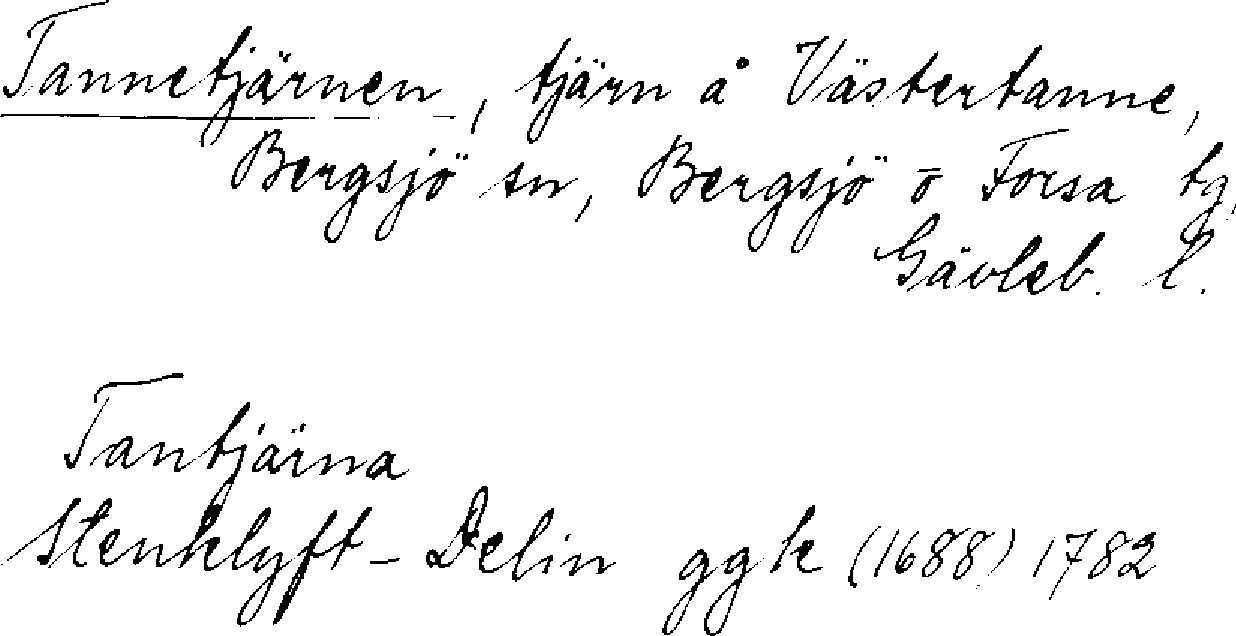 Tannetjärnen, tjärn å Västertanne,
Bergsjö sn, Bergsjö o Forsa tg,
Gävleb. l.
Tantjärna
Stenklyft-Delin ggk (1688) 1782